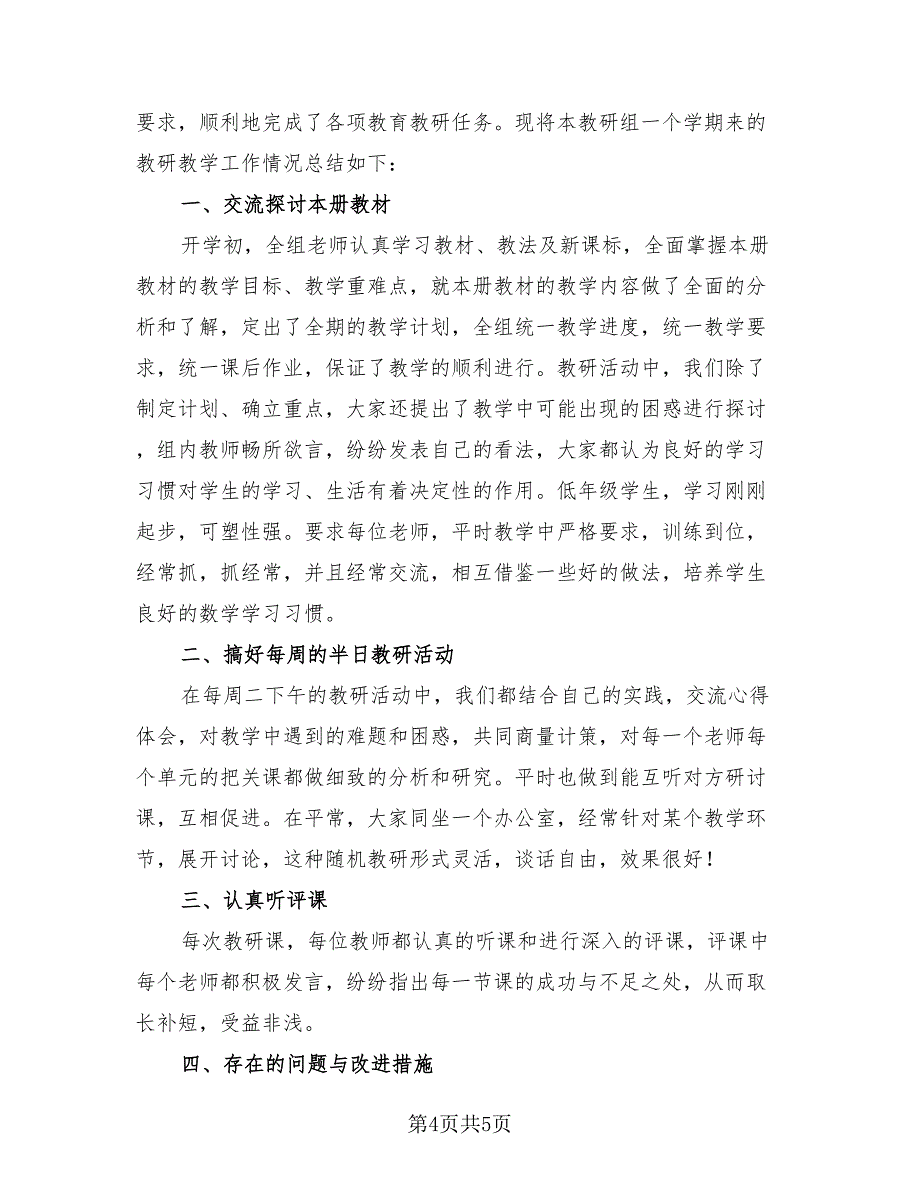 要求，顺利地完成了各项教育教研任务。现将本教研组一个学期来的
教研教学工作情况总结如下：
一、交流探讨本册教材
开学初，全组老师认真学习教材、教法及新课标，全面掌握本册
教材的教学目标、教学重难点，就本册教材的教学内容做了全面的分
析和了解，定出了全期的教学计划，全组统一教学进度，统一教学要
求，统一课后作业，保证了教学的顺利进行。教研活动中，我们除了
制定计划、确立重点，大家还提出了教学中可能出现的困惑进行探讨
，组内教师畅所欲言，纷纷发表自己的看法，大家都认为良好的学习
习惯对学生的学习、生活有着决定性的作用。低年级学生，学习刚刚
起步，可塑性强。要求每位老师，平时教学中严格要求，训练到位，
经常抓，抓经常，并且经常交流，相互借鉴一些好的做法，培养学生
良好的数学学习习惯。
二、搞好每周的半日教研活动
在每周二下午的教研活动中，我们都结合自己的实践，交流心得
体会，对教学中遇到的难题和困惑，共同商量计策，对每一个老师每
个单元的把关课都做细致的分析和研究。平时也做到能互听对方研讨
课，互相促进。在平常，大家同坐一个办公室，经常针对某个教学环
节，展开讨论，这种随机教研形式灵活，谈话自由，效果很好！
三、认真听评课
每次教研课，每位教师都认真的听课和进行深入的评课，评课中
每个老师都积极发言，纷纷指出每一节课的成功与不足之处，从而取
长补短，受益非浅。
四、存在的问题与改进措施
第4页共5页